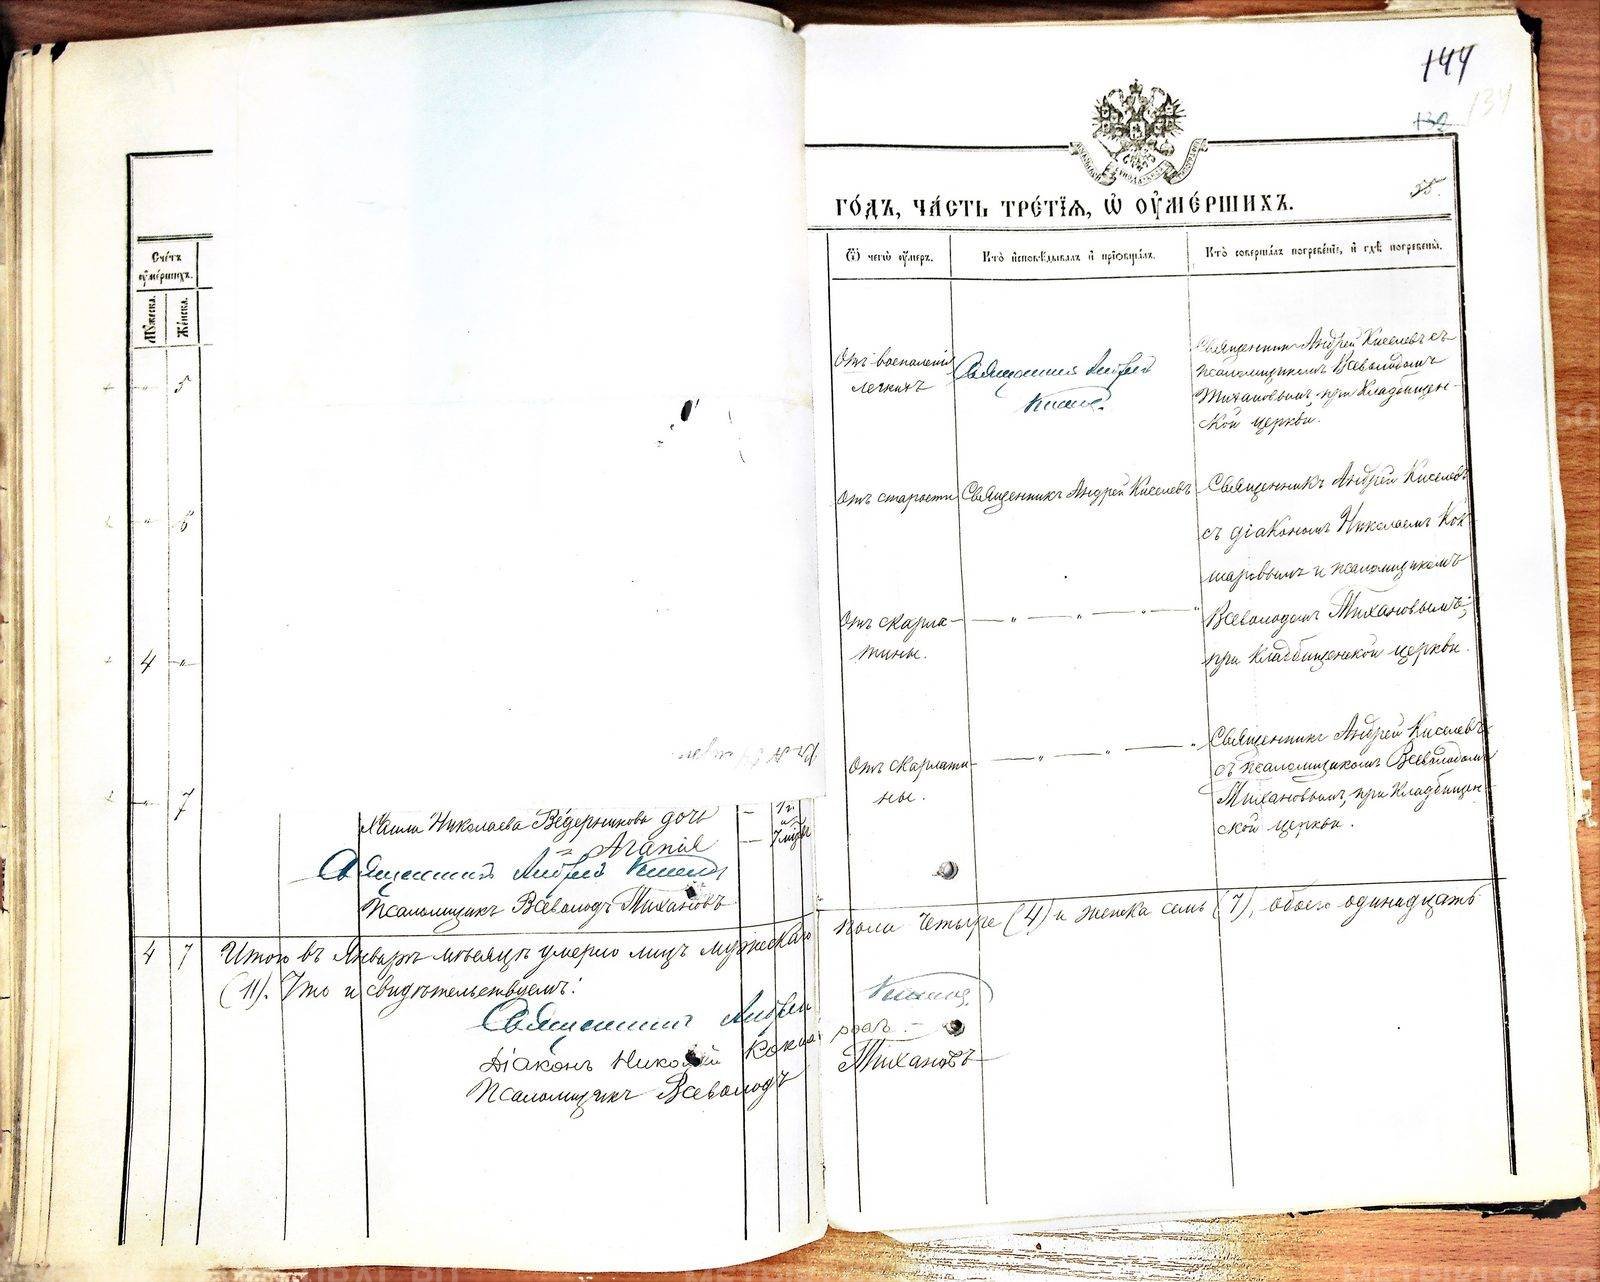 144
134
132
25.
ГО́ДЪ, ЧА́СТЬ ТРЕ́ТІѦ, Ѡ҆ ОУ҆МЕ́РШИХЪ.
Сче́тъ
оу҆ме́ршихъ.
Мꙋ́жеска.
Же́нска.
Ѿ чегѡ̀ оу҆́меръ.
Кто̀ и҆сповѣ́дывалъ и҆ прїѻбща́лъ.
Кто̀ соверша́лъ погребе́нїе, и҆ гдѣ̀ погребены̀.
- " - 5
Отъ воспаленія
легкихъ
Священникъ Андрей
Киселев.
Священникъ Андрей Киселевъ съ
псаломщикомъ Всеволодомъ
Тихановымъ, при Кладбищен-
ской церкви.
- " - 6
Отъ старости
Священникъ Андрей Киселевъ
Священникъ Андрей Киселевъ
съ діакономъ Николаемъ Кок-
шаровымъ и псаломщикомъ
Всеволодомъ Тихановымъ;
при Кладбищенской церкви.
4 - " -
Отъ скарла-
тины.
— " — " — " — "
- " - 7
Отъ скарлати-
ны.
— " — " — "
Священникъ Андрей Киселевъ
съ псаломщикомъ Всеволодомъ
Тихановымъ, при Кладбищен-
ской церкви.
Николаева Ведерникова дочь
— 1 г.
и
= Агапія — 7 мѣс.
Священникъ Андрей Киселев
Псаломщикъ Всеволодъ Тихановъ
4 7 Итого въ Январѣ мѣсяцѣ умерло лицъ мужескаго пола четыре (4) и женска семь (7), обоего одинадцать
(11). Что и свидѣтельствуемъ:
Священникъ Андрей Киселев.
Діаконъ Николай Кокшаровъ. —
Псаломщикъ Всеволодъ Тихановъ